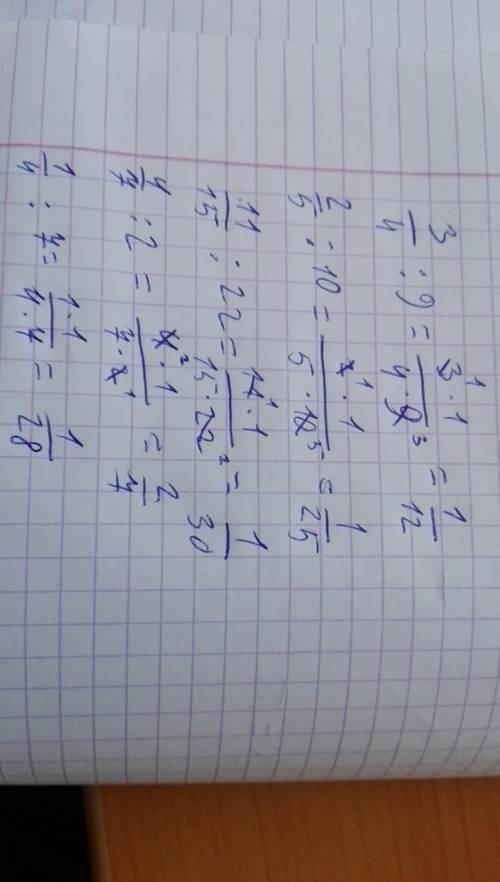 3/4 : 9 = 3¹·1/4·9₃ = 1/12
2/5 : 10 = 2¹·1/5·10⁵ = 1/25
11/15 : 22 = 11¹·1/15·22₂ = 1/30
4/7 : 2 = 4²·1/7·2¹ = 2/7
1/4 : 7 = 1·1/4·7 = 1/28